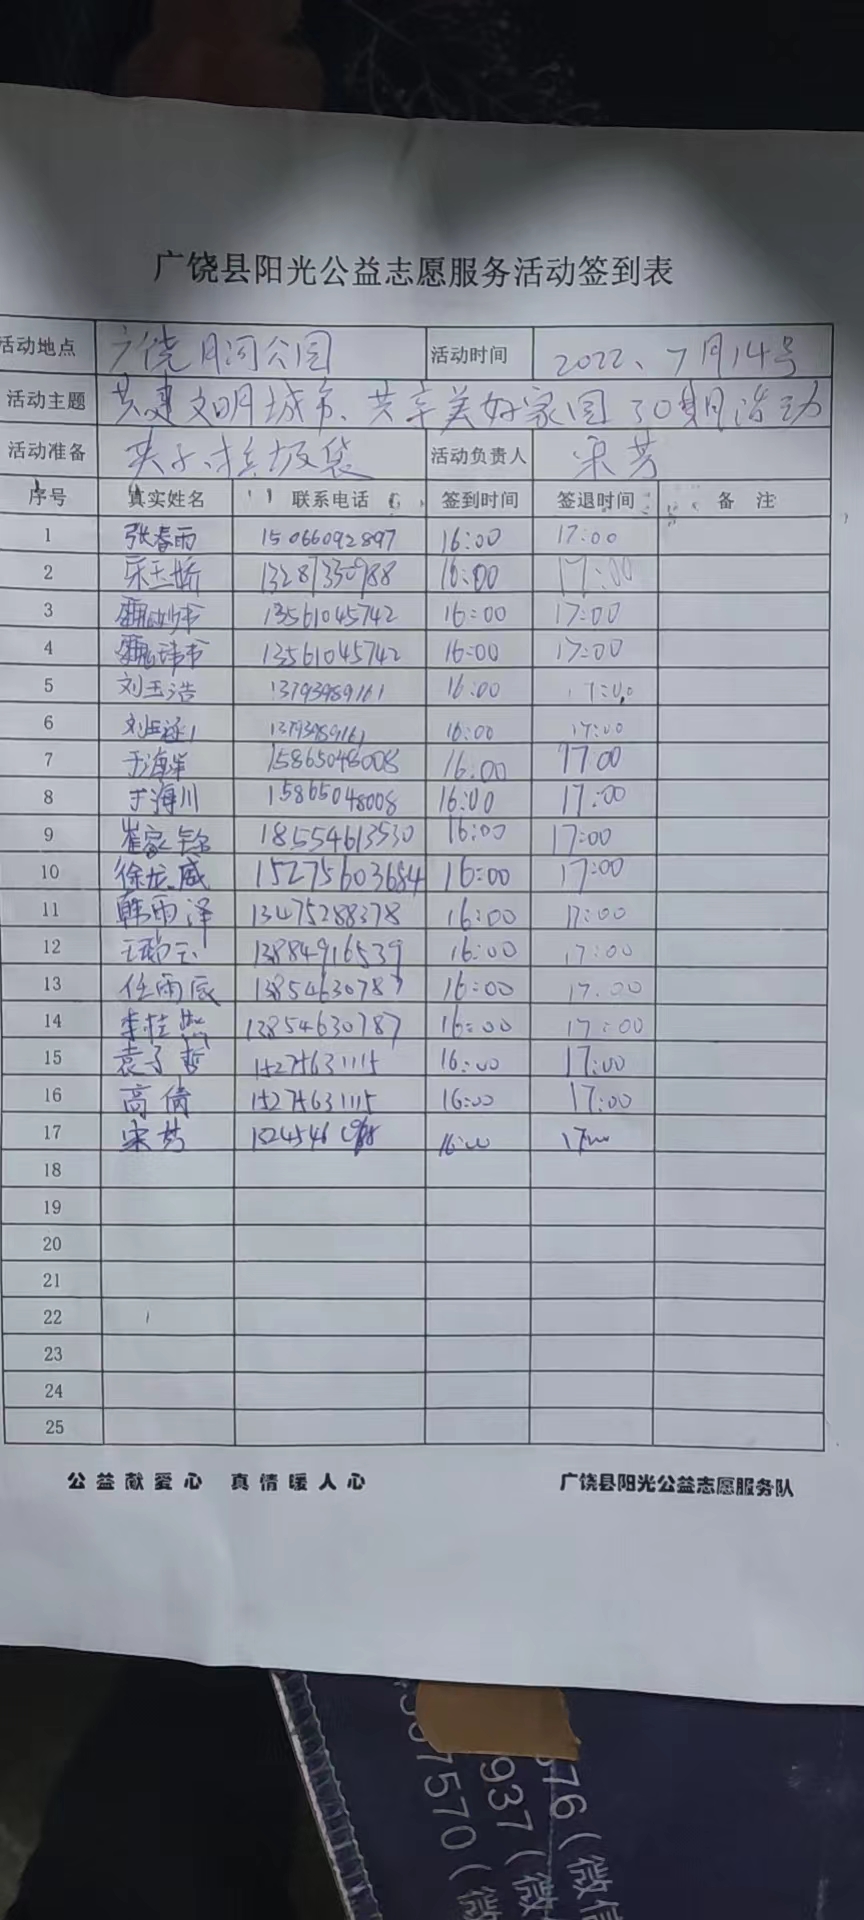 广饶县阳光公益志愿服务活动签到表
活动地点 广饶月河公园 活动时间 2022、7月14号
活动主题 共建文明城市、共享美好家园 30期活动
活动准备 夹子、垃圾袋 活动负责人 宋芳
序号 真实姓名 联系电话 签到时间 签退时间 备 注
1 张春雨 15066092897 16:00 17:00
2 宋玉娇 13287330988 16:00 17:00
3 13561045742 16:00 17:00
4 13561045742 16:00 17:00
5 刘玉浩 13793989161 16:00 17:00
6 13793989161 16:00 17:00
7 于海洋 15865048008 16:00 17:00
8 于海川 15865048008 16:00 17:00
9 崔家 18554613530 16:00 17:00
10 徐龙威 15275603684 16:00 17:00
11 韩雨泽 13475288378 16:00 17:00
12 13884916539 16:00 17:00
13 任雨辰 13854630787 16:00 17:00
14 李桂 13854630787 16:00 17:00
15 袁子哲 15275631115 16:00 17:00
16 高倩 15275631115 16:00 17:00
17 宋芳 16:00 17:00
18
19
20
21
22
23
24
25
公益献爱心 真情暖人心 广饶县阳光公益志愿服务队
576(微信
937(微
7570(